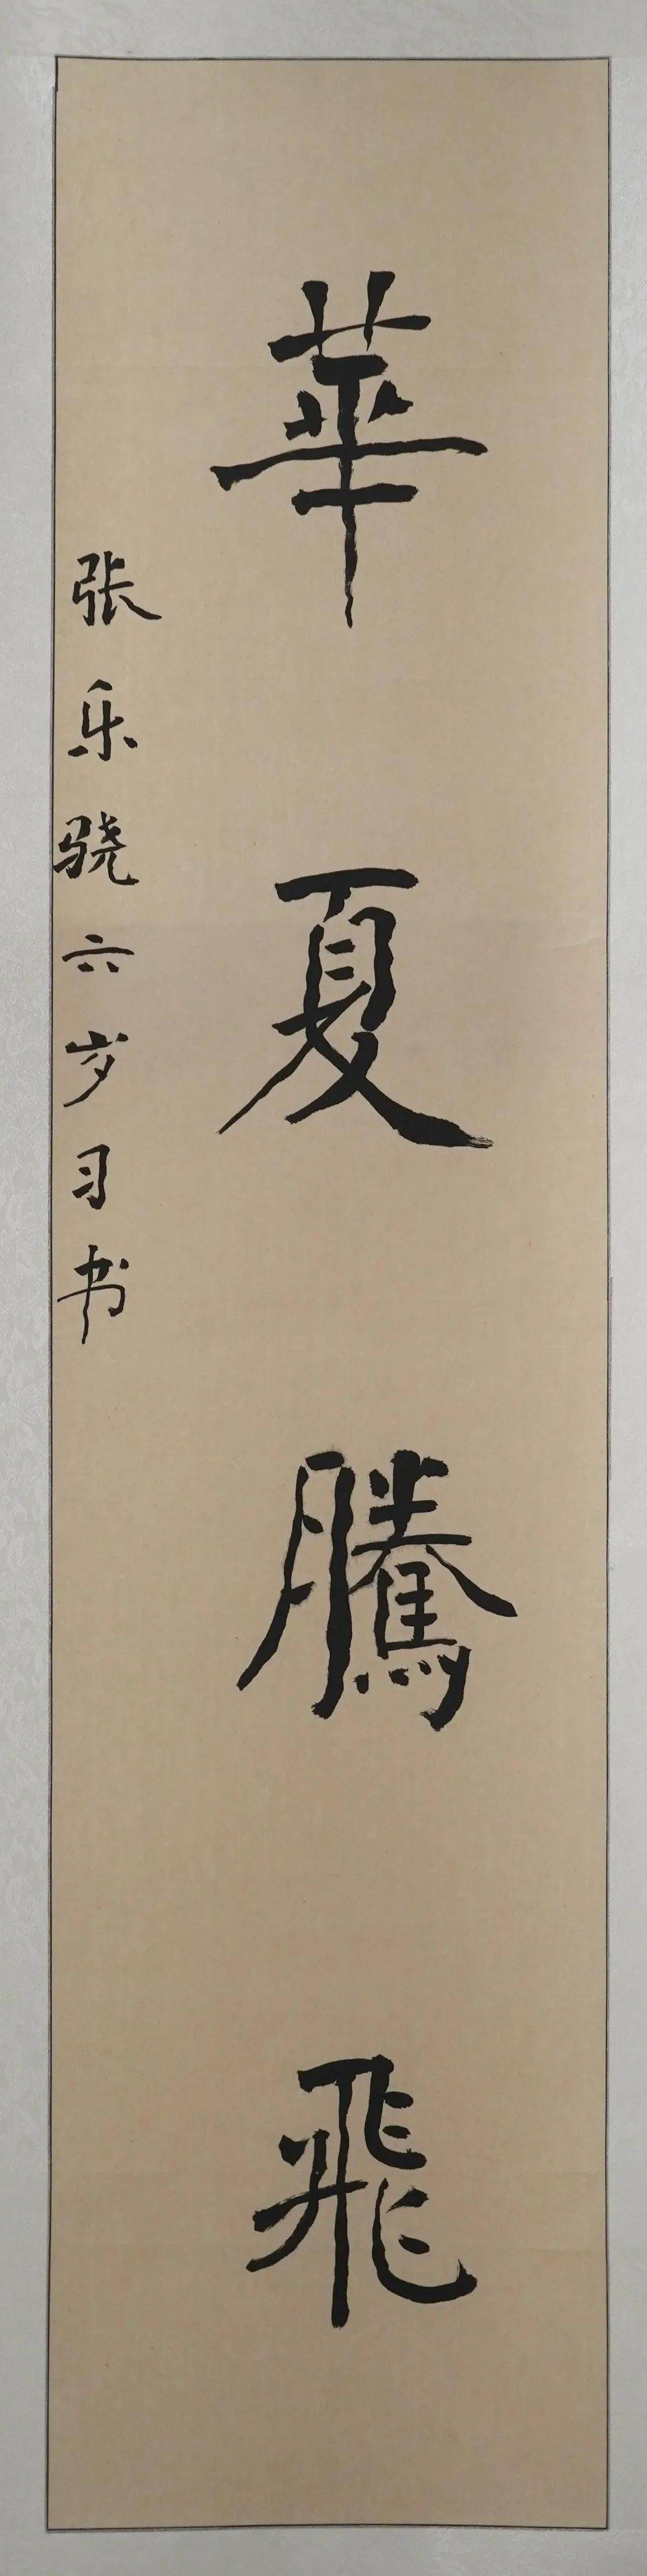 華夏騰飛
张乐骁六岁习书